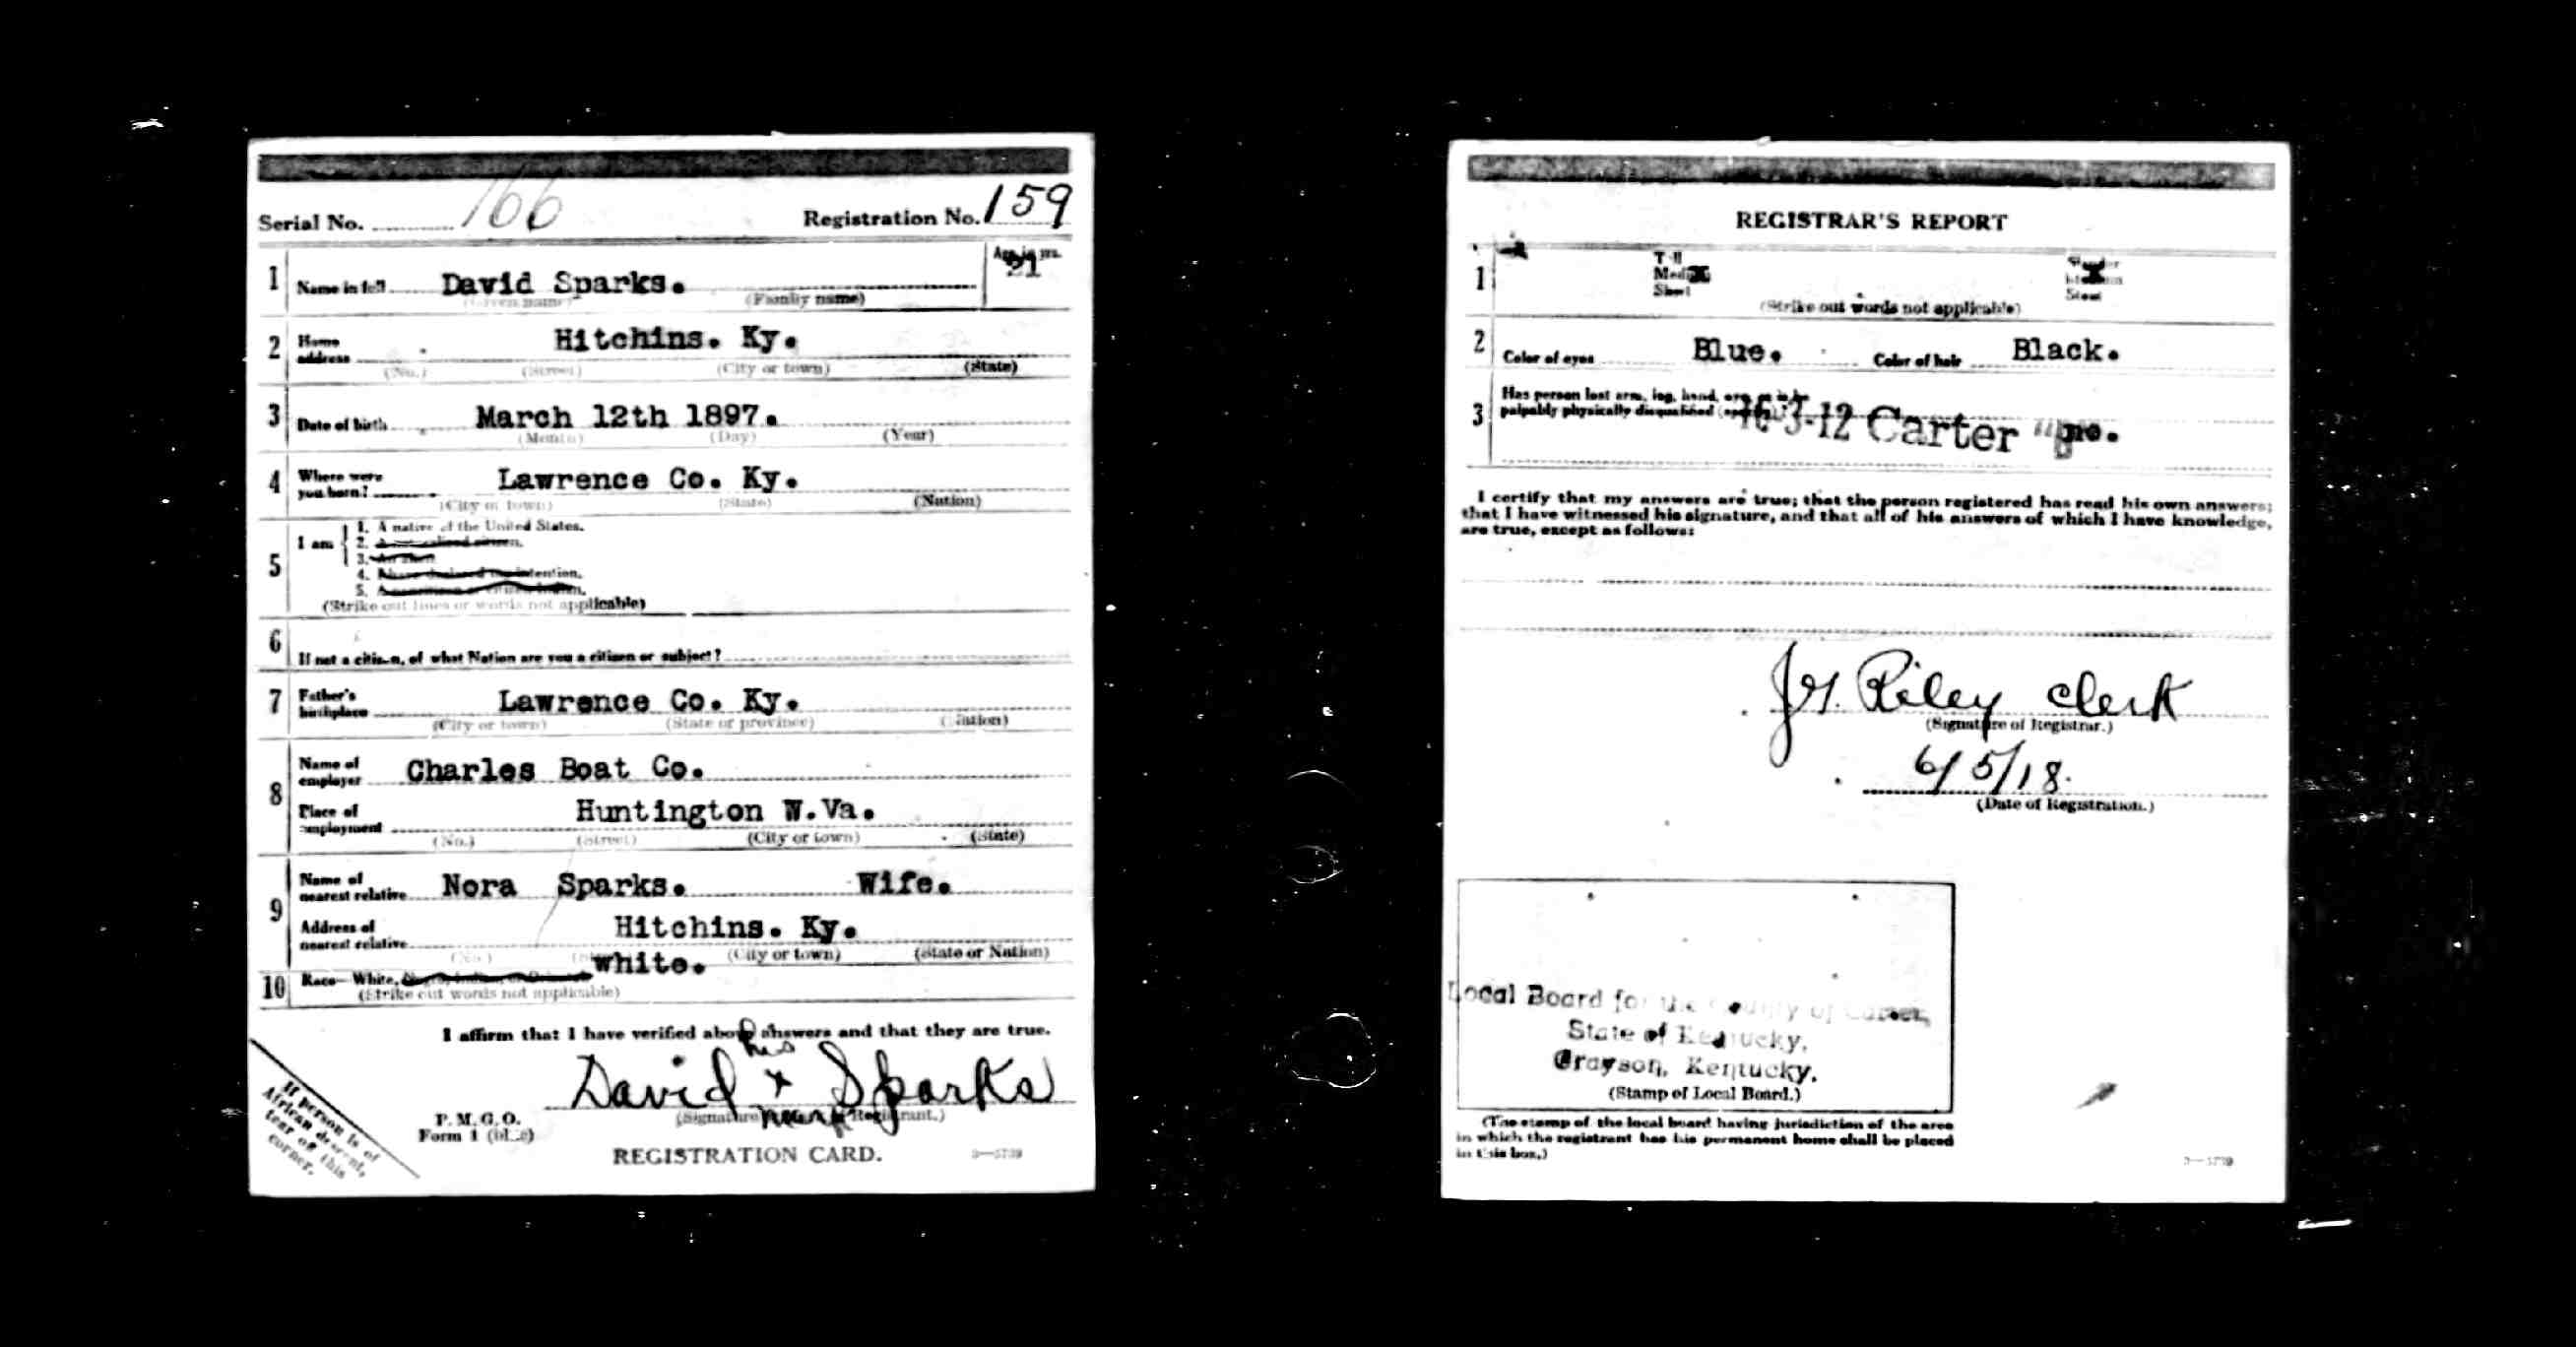 Serial No. 166 Registration No. 159
1 Name in full David Sparks. Age in yrs. 21
(Given name) (Family name)
2 Home address Hitchins. Ky.
(No.) (Street) (City or town) (State)
3 Date of birth March 12th 1897.
(Month) (Day) (Year)
4 Where were you born? Lawrence Co. Ky.
(City or town) (State) (Nation)
5 I am
1. A native of the United States.
2.
3. An alien
4. Have declared my intention.
5.
(Strike out lines or words not applicable)
6 If not a citizen, of what Nation are you a citizen or subject?
7 Father's birthplace Lawrence Co. Ky.
(City or town) (State or province) (Nation)
8 Name of employer Charles Boat Co.
Place of employment Huntington W.Va.
(No.) (Street) (City or town) (State)
9 Name of nearest relative Nora Sparks. Wife.
Address of nearest relative Hitchins. Ky.
(No.) (City or town) (State or Nation)
white.
10 Race—White,
(Strike out words not applicable)
I affirm that I have verified above answers and that they are true.
his
David x Sparks
mark
(Signature Registrant.)
P. M. G. O.
Form 1 (blue)
REGISTRATION CARD.
3—5739
If person is
African descent,
tear off this
corner.
REGISTRAR'S REPORT
1
Tall
Medium
Short
Slender
Medium
Stout
(Strike out words not applicable)
2 Color of eyes Blue. Color of hair Black.
3 Has person lost arm, leg, hand,
palpably physically disqualified no.
16-3-12 Carter
I certify that my answers are true; that the person registered has read his own answers;
that I have witnessed his signature, and that all of his answers of which I have knowledge,
are true, except as follows:
Riley Clerk
(Signature of Registrar.)
6/5/18.
(Date of Registration.)
Local Board for the County of Carter,
State of Kentucky,
Grayson, Kentucky.
(Stamp of Local Board.)
(The stamp of the local board having jurisdiction of the area
in which the registrant has his permanent home shall be placed
in this box.)
3—5739